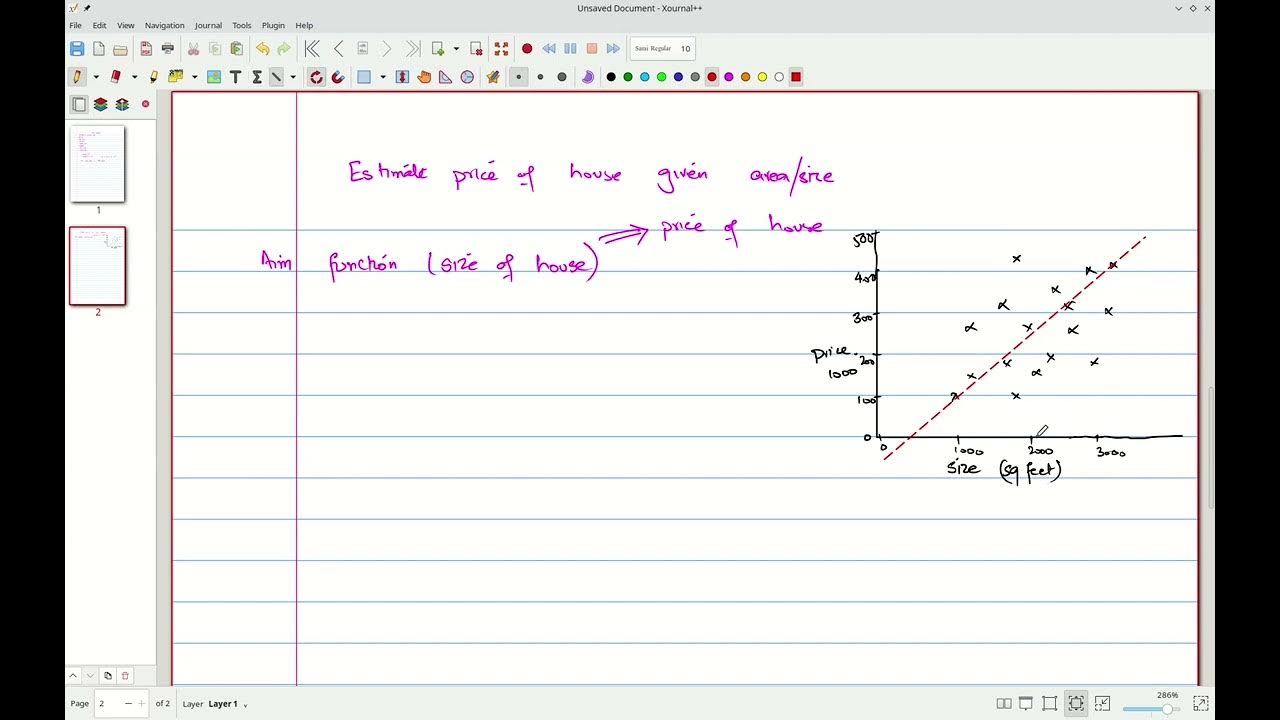 Unsaved Document - Xournal++
File Edit View Navigation Journal Tools Plugin Help
Sans Regular 10
1
2
Estimate price of house given area/size
price of house
Aim function (size of house)
500
400
300
200
100
0
Price
1000
0 1000 2000 3000
size (sq feet)
Page 2 of 2 Layer Layer 1
286%